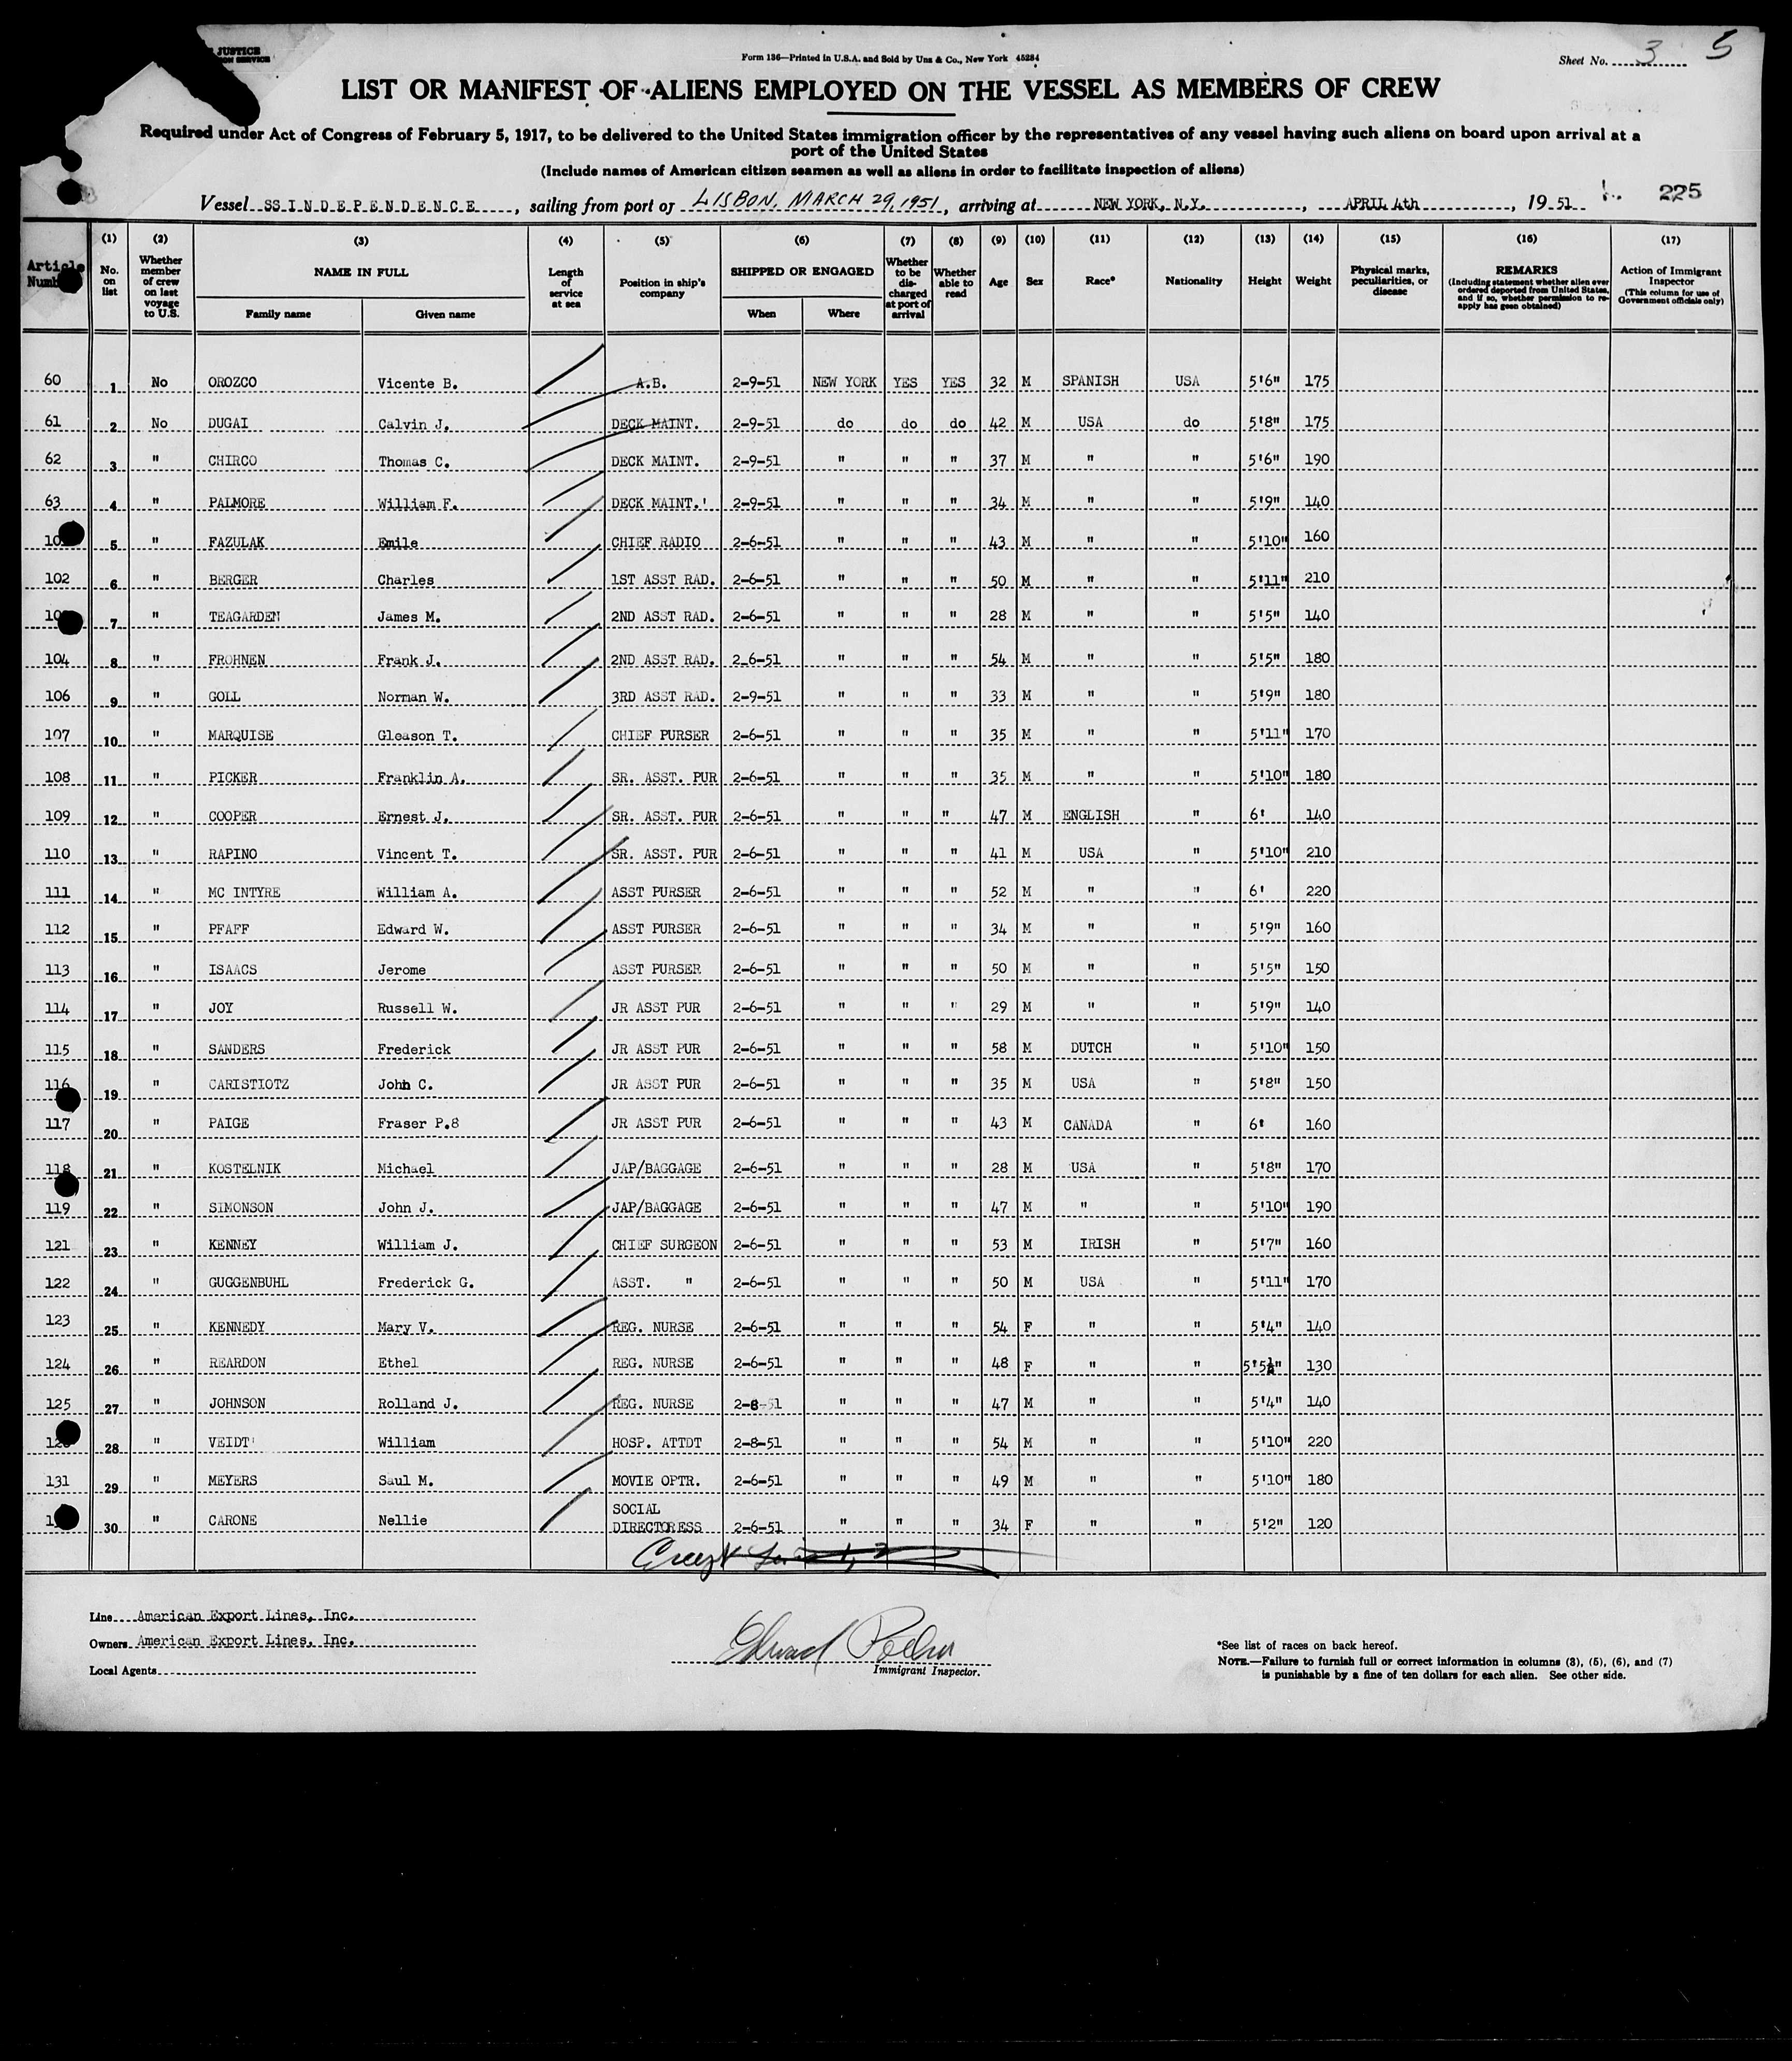 JUSTICE
ON SERVICE
Form 136—Printed in U.S.A. and Sold by Unz & Co., New York 45284
Sheet No. 3 5
LIST OR MANIFEST OF ALIENS EMPLOYED ON THE VESSEL AS MEMBERS OF CREW
Required under Act of Congress of February 5, 1917, to be delivered to the United States immigration officer by the representatives of any vessel having such aliens on board upon arrival at a
port of the United States
(Include names of American citizen seamen as well as aliens in order to facilitate inspection of aliens)
Vessel SS INDEPENDENCE, sailing from port of LISBON, MARCH 29, 1951, arriving at NEW YORK, N.Y., APRIL 4th, 19 51 225
Article Number (1) No. on list (2) Whether member of crew on last voyage to U.S. (3) NAME IN FULL Family name Given name (4) Length of service at sea (5) Position in ship's company (6) SHIPPED OR ENGAGED When Where (7) Whether to be discharged at port of arrival (8) Whether able to read (9) Age (10) Sex (11) Race* (12) Nationality (13) Height (14) Weight (15) Physical marks, peculiarities, or disease (16) REMARKS (Including statement whether alien ever ordered deported from United States, and if so, whether permission to re-apply has been obtained) (17) Action of Immigrant Inspector (This column for use of Government officials only)
60 1 No OROZCO Vicente B. A.B. 2-9-51 NEW YORK YES YES 32 M SPANISH USA 5'6" 175
61 2 No DUGAI Calvin J. DECK MAINT. 2-9-51 do do do 42 M USA do 5'8" 175
62 3 " CHIRCO Thomas C. DECK MAINT. 2-9-51 " " " 37 M " " 5'6" 190
63 4 " PALMORE William F. DECK MAINT.' 2-9-51 " " " 34 M " " 5'9" 140
5 " FAZULAK Emile CHIEF RADIO 2-6-51 " " " 43 M " " 5'10" 160
102 6 " BERGER Charles 1ST ASST RAD. 2-6-51 " " " 50 M " " 5'11" 210
7 " TEAGARDEN James M. 2ND ASST RAD. 2-6-51 " " " 28 M " " 5'5" 140
104 8 " FROHNEN Frank J. 2ND ASST RAD. 2-6-51 " " " 54 M " " 5'5" 180
106 9 " GOLL Norman W. 3RD ASST RAD. 2-9-51 " " " 33 M " " 5'9" 180
107 10 " MARQUISE Gleason T. CHIEF PURSER 2-6-51 " " " 35 M " " 5'11" 170
108 11 " PICKER Franklin A. SR. ASST. PUR 2-6-51 " " " 35 M " " 5'10" 180
109 12 " COOPER Ernest J. SR. ASST. PUR 2-6-51 " " " 47 M ENGLISH " 6' 140
110 13 " RAPINO Vincent T. SR. ASST. PUR 2-6-51 " " " 41 M USA " 5'10" 210
111 14 " MC INTYRE William A. ASST PURSER 2-6-51 " " " 52 M " " 6' 220
112 15 " PFAFF Edward W. ASST PURSER 2-6-51 " " " 34 M " " 5'9" 160
113 16 " ISAACS Jerome ASST PURSER 2-6-51 " " " 50 M " " 5'5" 150
114 17 " JOY Russell W. JR ASST PUR 2-6-51 " " " 29 M " " 5'9" 140
115 18 " SANDERS Frederick JR ASST PUR 2-6-51 " " " 58 M DUTCH " 5'10" 150
116 19 " CARISTIOTZ John C. JR ASST PUR 2-6-51 " " " 35 M USA " 5'8" 150
117 20 " PAIGE Fraser P.8 JR ASST PUR 2-6-51 " " " 43 M CANADA " 6' 160
118 21 " KOSTELNIK Michael JAP/BAGGAGE 2-6-51 " " " 28 M USA " 5'8" 170
119 22 " SIMONSON John J. JAP/BAGGAGE 2-6-51 " " " 47 M " " 5'10" 190
121 23 " KENNEY William J. CHIEF SURGEON 2-6-51 " " " 53 M IRISH " 5'7" 160
122 24 " GUGGENBUHL Frederick G. ASST. " 2-6-51 " " " 50 M USA " 5'11" 170
123 25 " KENNEDY Mary V. REG. NURSE 2-6-51 " " " 54 F " " 5'4" 140
124 26 " REARDON Ethel REG. NURSE 2-6-51 " " " 48 F " " 5'5½" 130
125 27 " JOHNSON Rolland J. REG. NURSE 2-8-51 " " " 47 M " " 5'4" 140
28 " VEIDT William HOSP. ATTDT 2-8-51 " " " 54 M " " 5'10" 220
131 29 " MEYERS Saul M. MOVIE OPTR. 2-6-51 " " " 49 M " " 5'10" 180
30 " CARONE Nellie SOCIAL DIRECTORESS 2-6-51 " " " 34 F " " 5'2" 120
Line American Export Lines, Inc.
Owners American Export Lines, Inc.
Local Agents
Edward
Immigrant Inspector.
*See list of races on back hereof.
NOTE.—Failure to furnish full or correct information in columns (3), (5), (6), and (7)
is punishable by a fine of ten dollars for each alien. See other side.